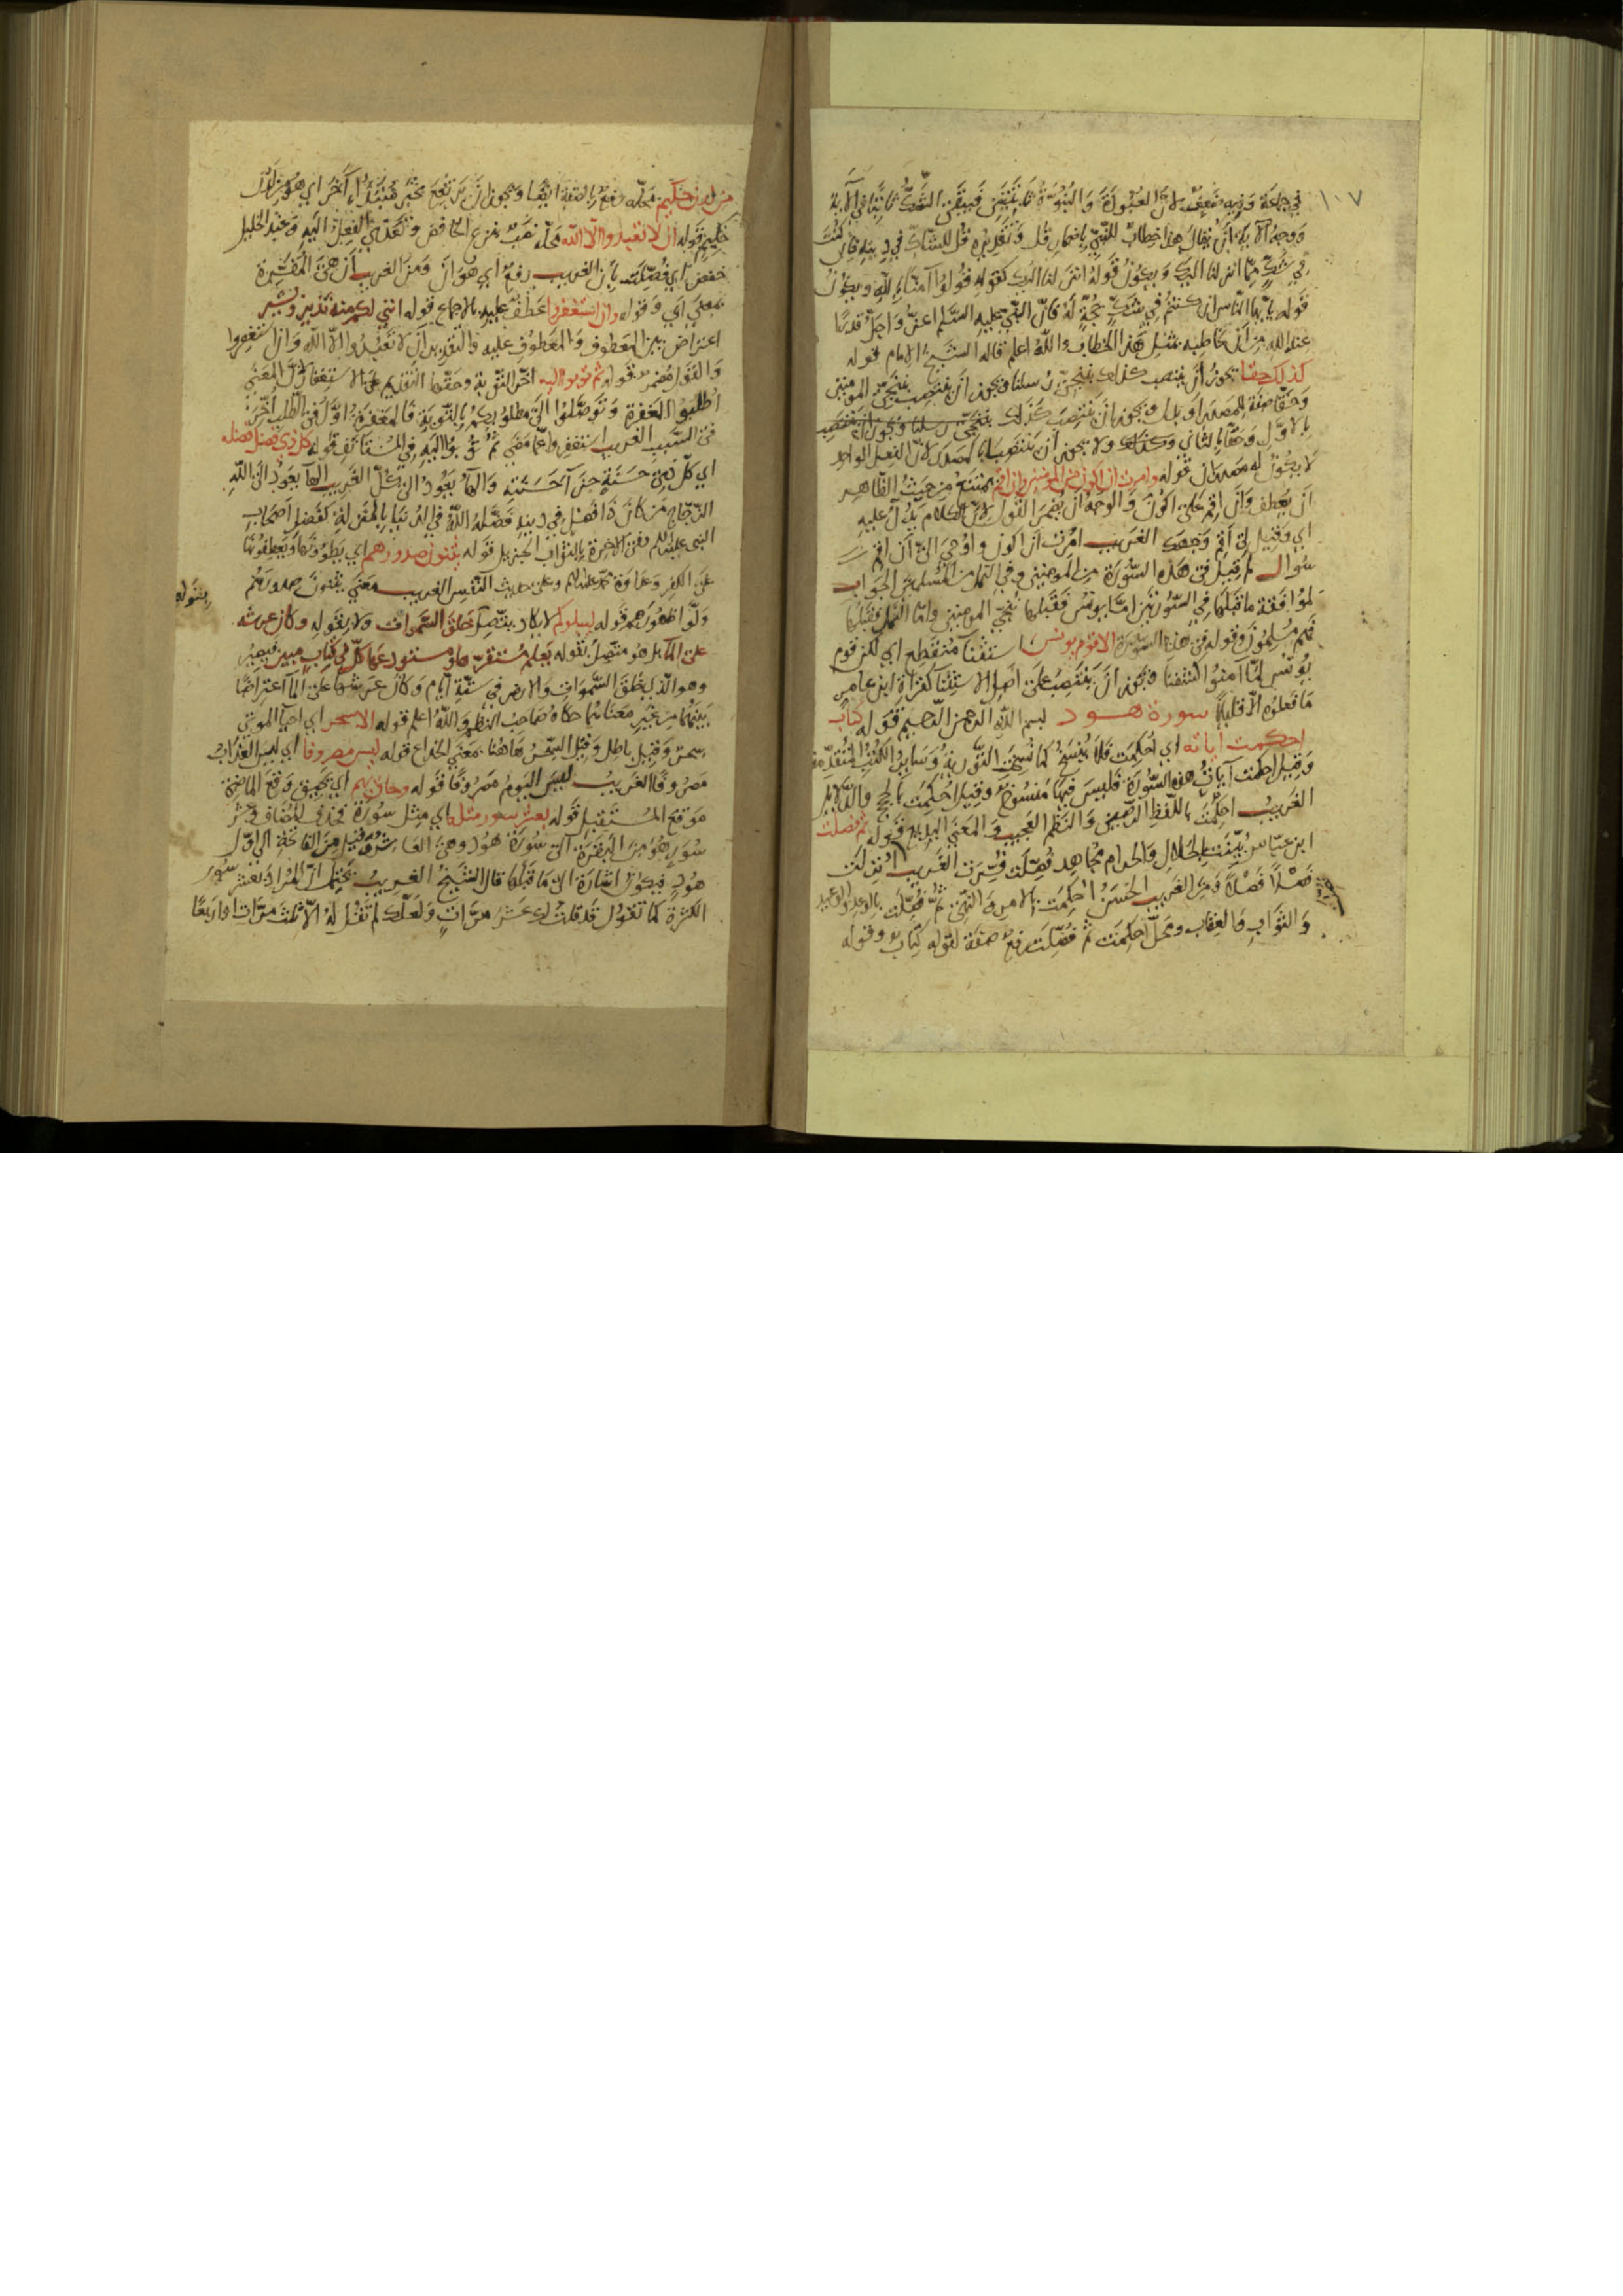 ١٠٧
في جملة وفيه ضعف لان العبودة والنبوة تنا فيبقى الشك ثابتا في الآية
ووجه الآية ان يقال هذا خطاب للنبي باضمار قل وتقديره قل للشاك في دينه فان كنت
في شك مما انزلنا اليك ويكون قوله انزلنا اليك كقوله قولوا آمنا بالله ويكون
قوله يا ايها الناس ان كنتم في شك حجة له فان النبي عليه السلم اعز واجل قدرا
عند الله من ان يخاطبه بمثل هذا الخطاب والله اعلم قاله الشيخ الامام قوله
كذلك حقا يجوز ان ينتصب كذلك بننجي رسلنا ويجوز ان ينتصب بننجي المومنين
وحقا صفة للمصدر او بدل ويجوز ان ينتصب كذلك بننجي رسلنا ويجوز ان ينتصب
بالاول وحقا بالثاني وكذلك ولا يجوز ان ينتصبا بالمصدر لان الفعل الواحد
لا يكون له مصدران قوله وامرت ان اكون من المومنين وان اقم يمتنع من حيث الظاهر
ان يعطف وان اقم على اكون والوجه ان يضمر القول لان الكلام يدل عليه
اي وقيل لي اقم وجهك الغريب امرت ان اكون واوحي الي ان اقم
سوال لم قيل في هذه السورة من المومنين وفي النمل من المسلمين الجواب
لموافقة ما قبلها في السورتين اما يونس فقبلها ننجي المومنين واما النمل فقبلها
فهم مسلمون وقوله في هذه السورة الا قوم يونس استثنآ منقطع اي لكن قوم
يونس لما آمنوا كشفنا ويجوز ان ينتصب على اصل الاستثنا كقراة ابن عامر
ما فعلوه الا قليلا سورة هود بسم الله الرحمن الرحيم قوله كتاب
احكمت اياته اي احكمت فلا ينسخ كما نسخت التورية وساير الكتب المتقدمة
وقيل احكمت آيات هذه السورة فليس فيها منسوخ وقيل احكمت بالحجج والدلايل
الغريب احكمت باللفظ الرصين والنظم العجيب والمعنى البديع قوله ثم فصلت
ابن عباس بينت بالحلال والحرام مجاهد فصلت فسرت الغريب انزلت
فصلا فصلا ومن الغريب الحسن احكمت بالامر والنهي ثم فصلت بالوعد والوعيد
والثواب والعقاب ومحل احكمت ثم فصلت رفع صفة لقوله كتاب وقوله
من لدن حكيم محله رفع بالصفة ايضا ويجوز ان يرتفع بخبر مبتدا آخر اي هو من لدن
حكيم قوله ان لا تعبدوا الا الله محله نصب بنزع الخافض وتعدي الفعل اليه وعند الخليل
خفض اي فصلت بان الغريب رفع اي هو ان ومن الغريب ان هي المفسرة
بمعنى اي وقوله وان استغفروا عطف عليه بالاجماع قوله انني لكم منه نذير وبشير
اعتراض بين المعطوف والمعطوف عليه والتقدير ان لا تعبدوا الا الله وان استغفروا
والقول مضمر قوله ثم توبوا اليه اخر التوبة وحقها التقديم على الاستغفار لان المعنى
اطلبوا المغفرة وتوصلوا الى مطلوبكم بالتوبة فالمغفرة اول في الطلب آخر
في السبب الغريب استغفروا عما مضى ثم توبوا اليه في المستانف قوله كل ذي فضل فضله
اي كل ذي حسنة جزآ حسنته والهآ يعود الى كل الغريب الهآ يعود الى الله
الزجاج من كان ذا فضل في دينه فضله الله في الدنيا بالمنزلة كفضل اصحاب
النبي عليه السلم وفي الاخرة بالثواب الجزيل قوله يثنون صدورهم اي يطوونها ويعطفونها
على الكفر وعداوة محمد عليه السلم وعلى حديث النفس الغريب معنى يثنون صدورهم
ولوا ظهورهم قوله ليبلوكم لا يكاد يتصل بخلق السموات ولا بقوله وكان عرشه
بقوله
على المآ بل هو متصل بقوله يعلم مستقرها ومستودعها كل في كتاب مبين فيصير
وهو الذي خلق السموات والارض في ستة ايام وكان عرشه على المآ اعتراضا
بينهما من غير معناهما حكاه صاحب النظم والله اعلم قوله الا سحر اي احيا الموتى
سحر وقيل باطل وقيل السحر هاهنا بمعنى الخداع قوله ليس مصروفا اي ليس العذاب
مصروفا الغريب ليس اليوم مصروفا قوله وحاق بهم اي يحيق وقع الماضي
موقع المستقبل قوله بعشر سور مثله اي مثل سورة فحذف المضاف عشر
سور هو من البقرة الى سورة هود وهي العاشرة وقيل من الفاتحة الى اول
هود فيكون اشارة الى ما قبلها قال الشيخ الغريب يحتمل ان المراد بعشر سور
الكثرة كما تقول قد قلت لك عشر مرات ولعلك لم تقل له الا ثلث مرات او اربعا